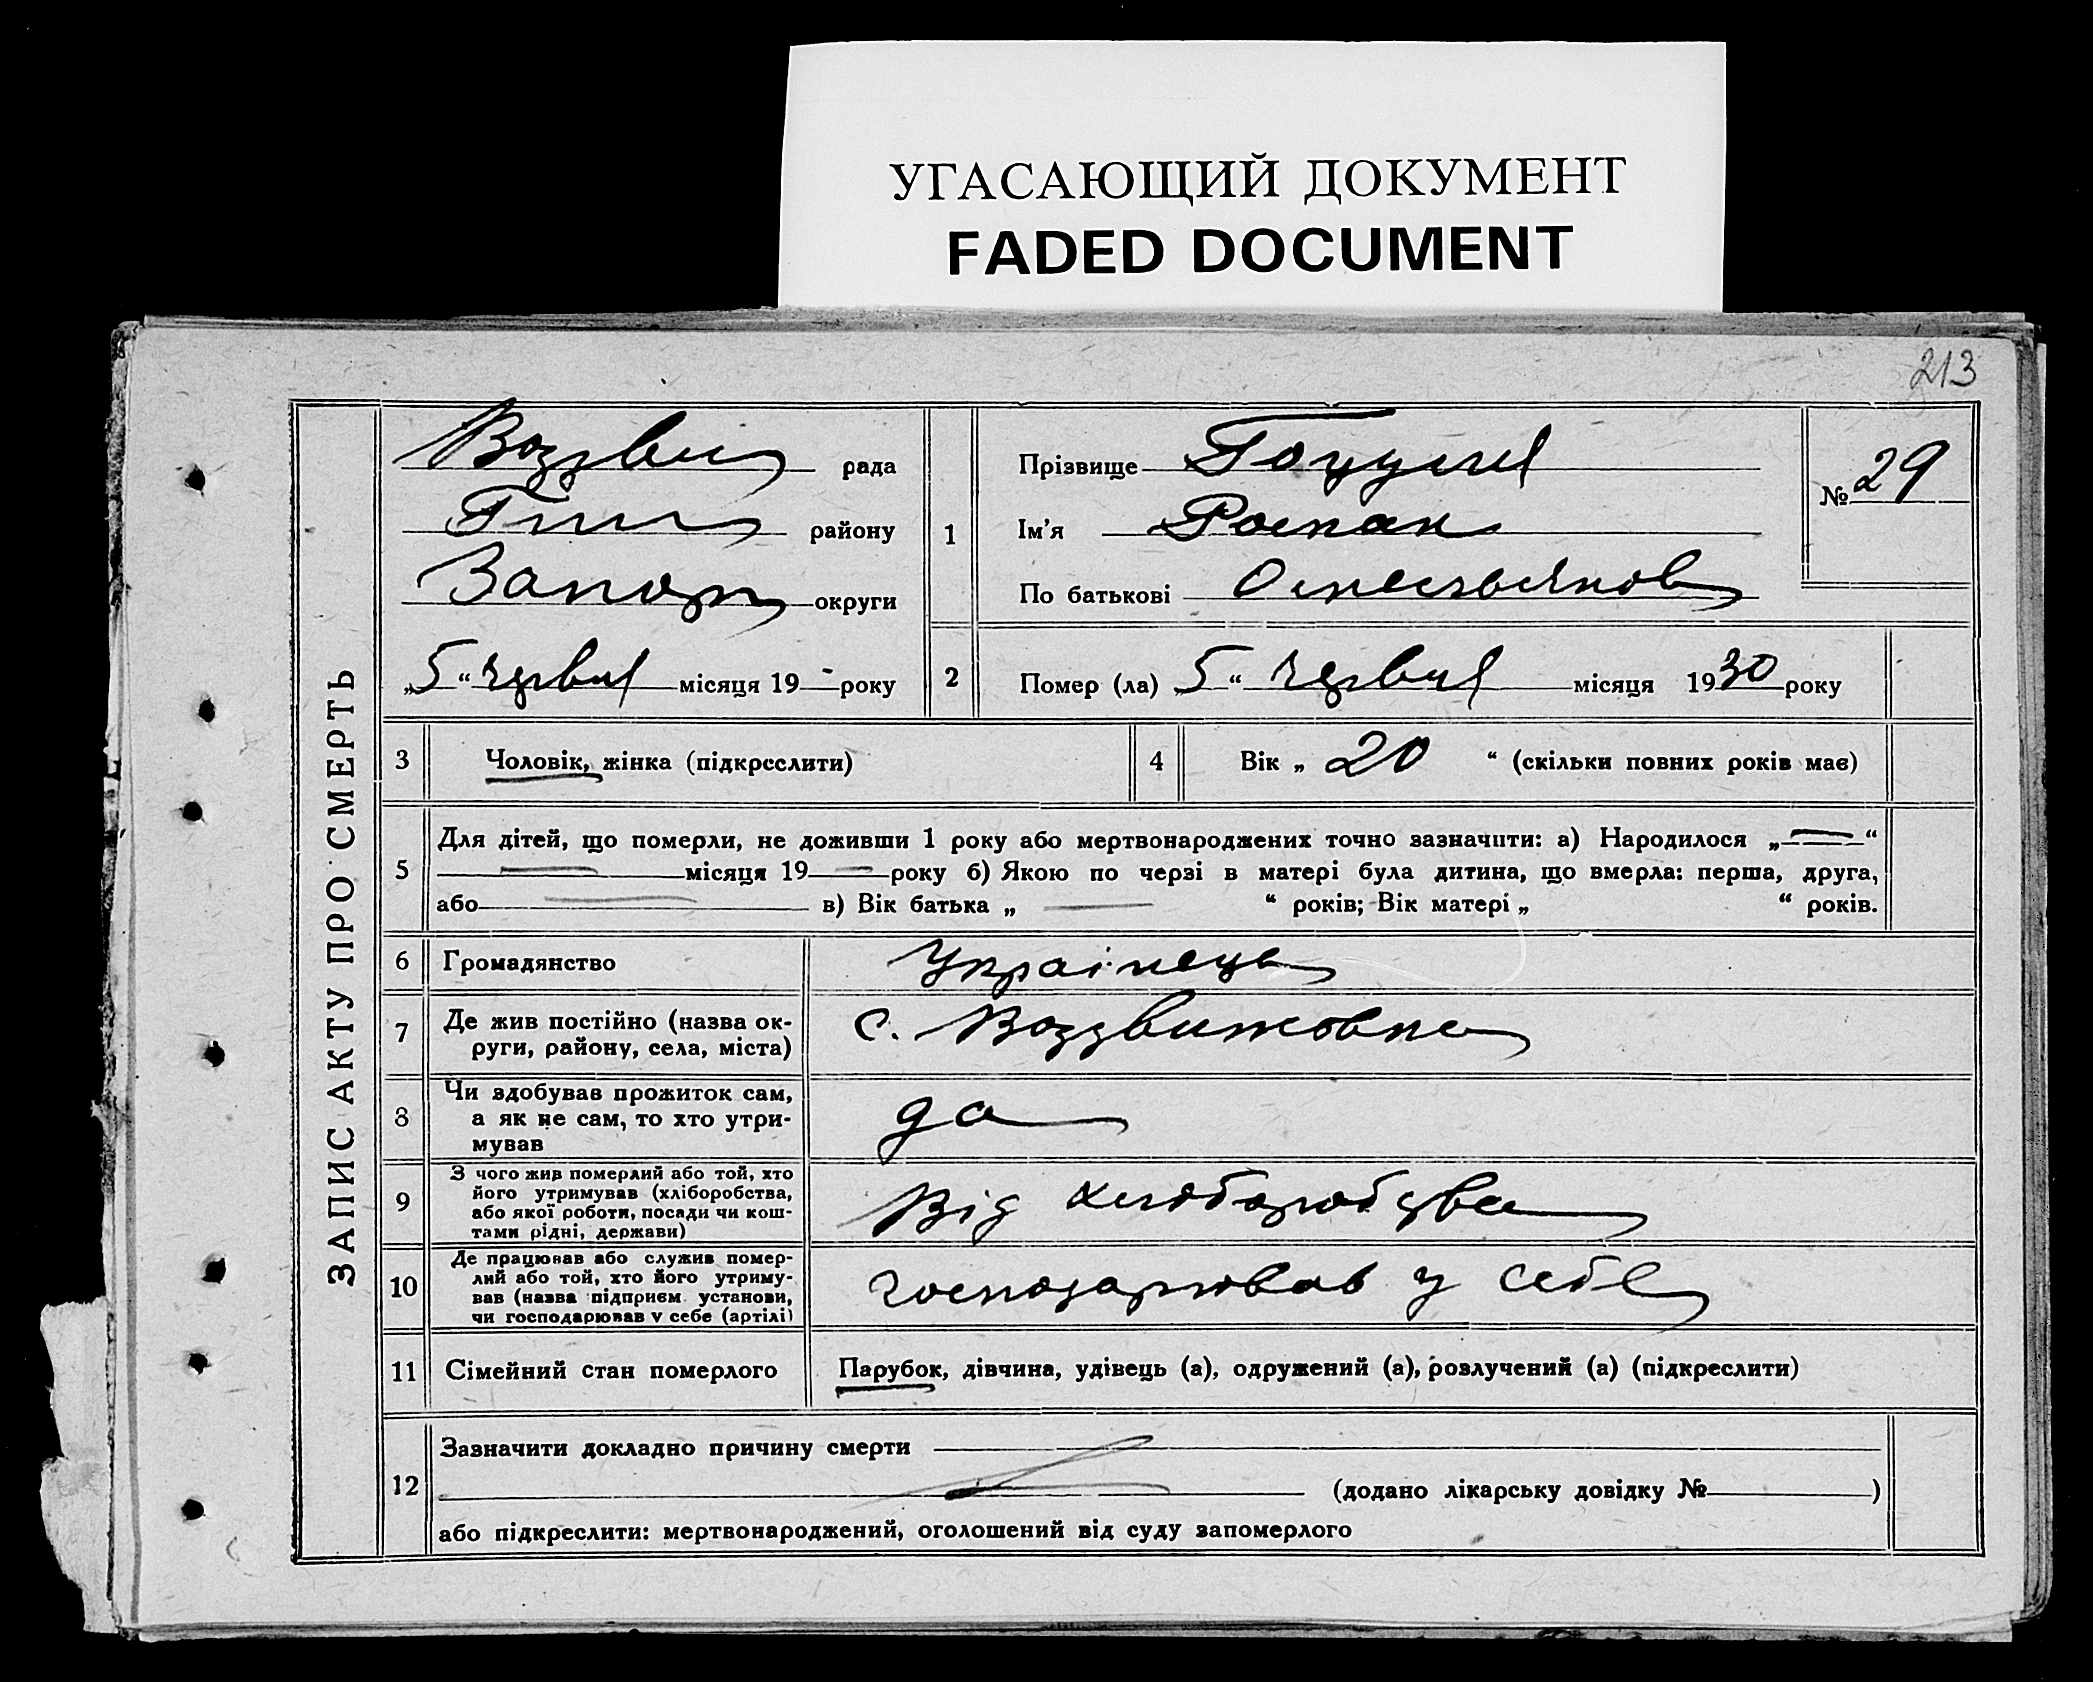 УГАСАЮЩИЙ ДОКУМЕНТ
FADED DOCUMENT
213
ЗАПИС АКТУ ПРО СМЕРТЬ
Воздви рада
району
Запор округи
„5“ червня місяця 19 – року
1
Прізвище
Ім'я Роман
По батькові
№ 29
2
Помер (ла) „5“ червня місяця 1930 року
3 Чоловік, жінка (підкреслити)
4 Вік „20“ (скільки повних років має)
5
Для дітей, що померли, не доживши 1 року або мертвонароджених точно зазначити: а) Народилося „—“
— місяця 19 — року б) Якою по черзі в матері була дитина, що вмерла: перша, друга,
або — в) Вік батька „ — “ років; Вік матері „ “ років.
6 Громадянство Українець
7 Де жив постійно (назва ок-
руги, району, села, міста)
с. Воздвижовка
8 Чи здобував прожиток сам,
а як не сам, то хто утри-
мував
да
9 З чого жив померлий або той, хто
його утримував (хліборобства,
або якої роботи, посади чи кош-
тами рідні, держави)
Від хліборобства
10 Де працював або служив помер-
лий або той, хто його утриму-
вав (назва підприєм. установи,
чи господарював у себе (артілі)
господарював у себе
11 Сімейний стан померлого Парубок, дівчина, удівець (а), одружений (а), розлучений (а) (підкреслити)
12
Зазначити докладно причину смерти
(додано лікарську довідку № )
або підкреслити: мертвонароджений, оголошений від суду запомерлого